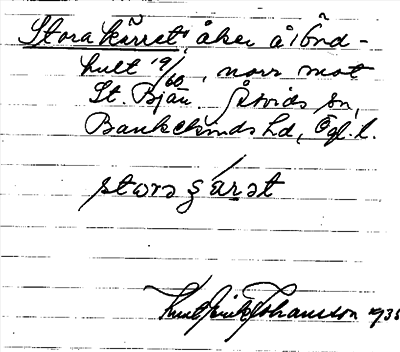 Stora kärret, åker å 1/6 Ånd-
hult 19/60, norr mot
St. Bjän. Åtvids sn,
Bankekinds hd, Ögl.
stora ʂárət
Knut Erik Johansson 193